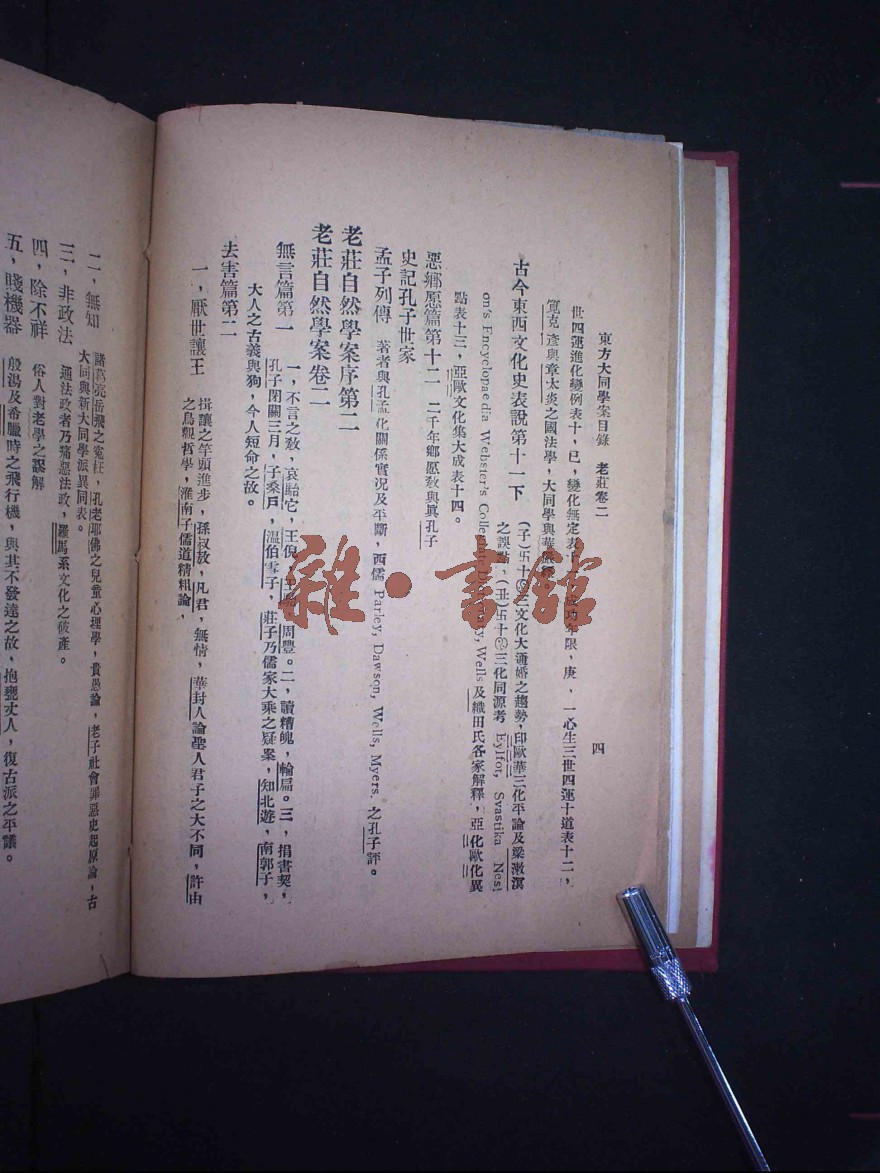 東方大同學案目錄　老莊卷二
四
世四運進化變例表十，巳，變化無定表十 成功年限，庚，一心生三世四運十道表十二，
筧克彥與章太炎之國法學，大同學與華嚴
古今東西文化史表說第十一下
（子）卐十@之文化大通婚之趨勢，印歐華三化平論及梁漱溟
之誤點，（丑）卐十@三化同源考 Eylfot, Svastika Nesl
on's Encyclopaedia Webster's Collegiate Dictionary, Wells 及織田氏各家解釋，亞化歐化異
點表十三，亞歐文化集大成表十四。
惡鄉愿篇第十二　二千年鄉愿敎與眞孔子
史記孔子世家
孟子列傳　著者與孔孟化關係實況及平斷，西儒 Parley, Dawson, Wells, Myers. 之孔子評。
老莊自然學案序第二
老莊自然學案卷二
無言篇第一　一，不言之敎，哀駘它，王倪，王駘，周豐。二，讀糟魄，輪扁。三，捐書契，
孔子閉關三月，子桑戶，溫伯雪子，莊子乃儒家大乘之疑案，知北遊，南郭子，
大人之古義與狗，今人短命之故。
去害篇第二
一，厭世讓王　揖讓之竿頭進步，孫叔敖，凡君，無情，華封人論聖人君子之大不同，許由
之鳥觀哲學，淮南子儒道精粗論，
二，無知　諸葛亮岳飛之冤枉，孔老耶佛之兒童心理學，貴愚論，老子社會罪惡史起原論，古
大同與新大同學派異同表。
三，非政法　通法政者乃痛惡法政，羅馬系文化之破產。
四，除不祥　俗人對老學之誤解
五，賤機器　殷湯及希臘時之飛行機，與其不發達之故，抱甕丈人，復古派之平議。
雜·書館